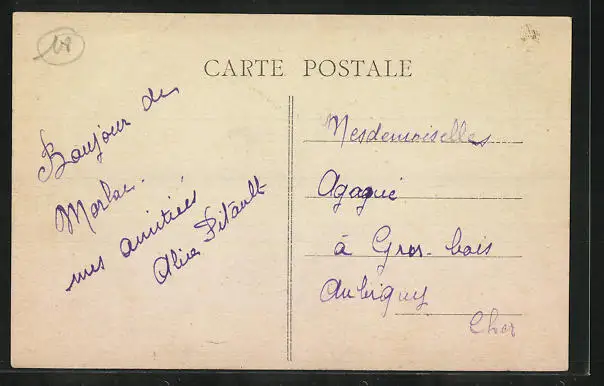 CARTE POSTALE
Bonjour de
Morlac.
mes amitiés
Alice Pitault
Mesdemoiselles
Agagué
à Gros-bois
Aubigny
Cher